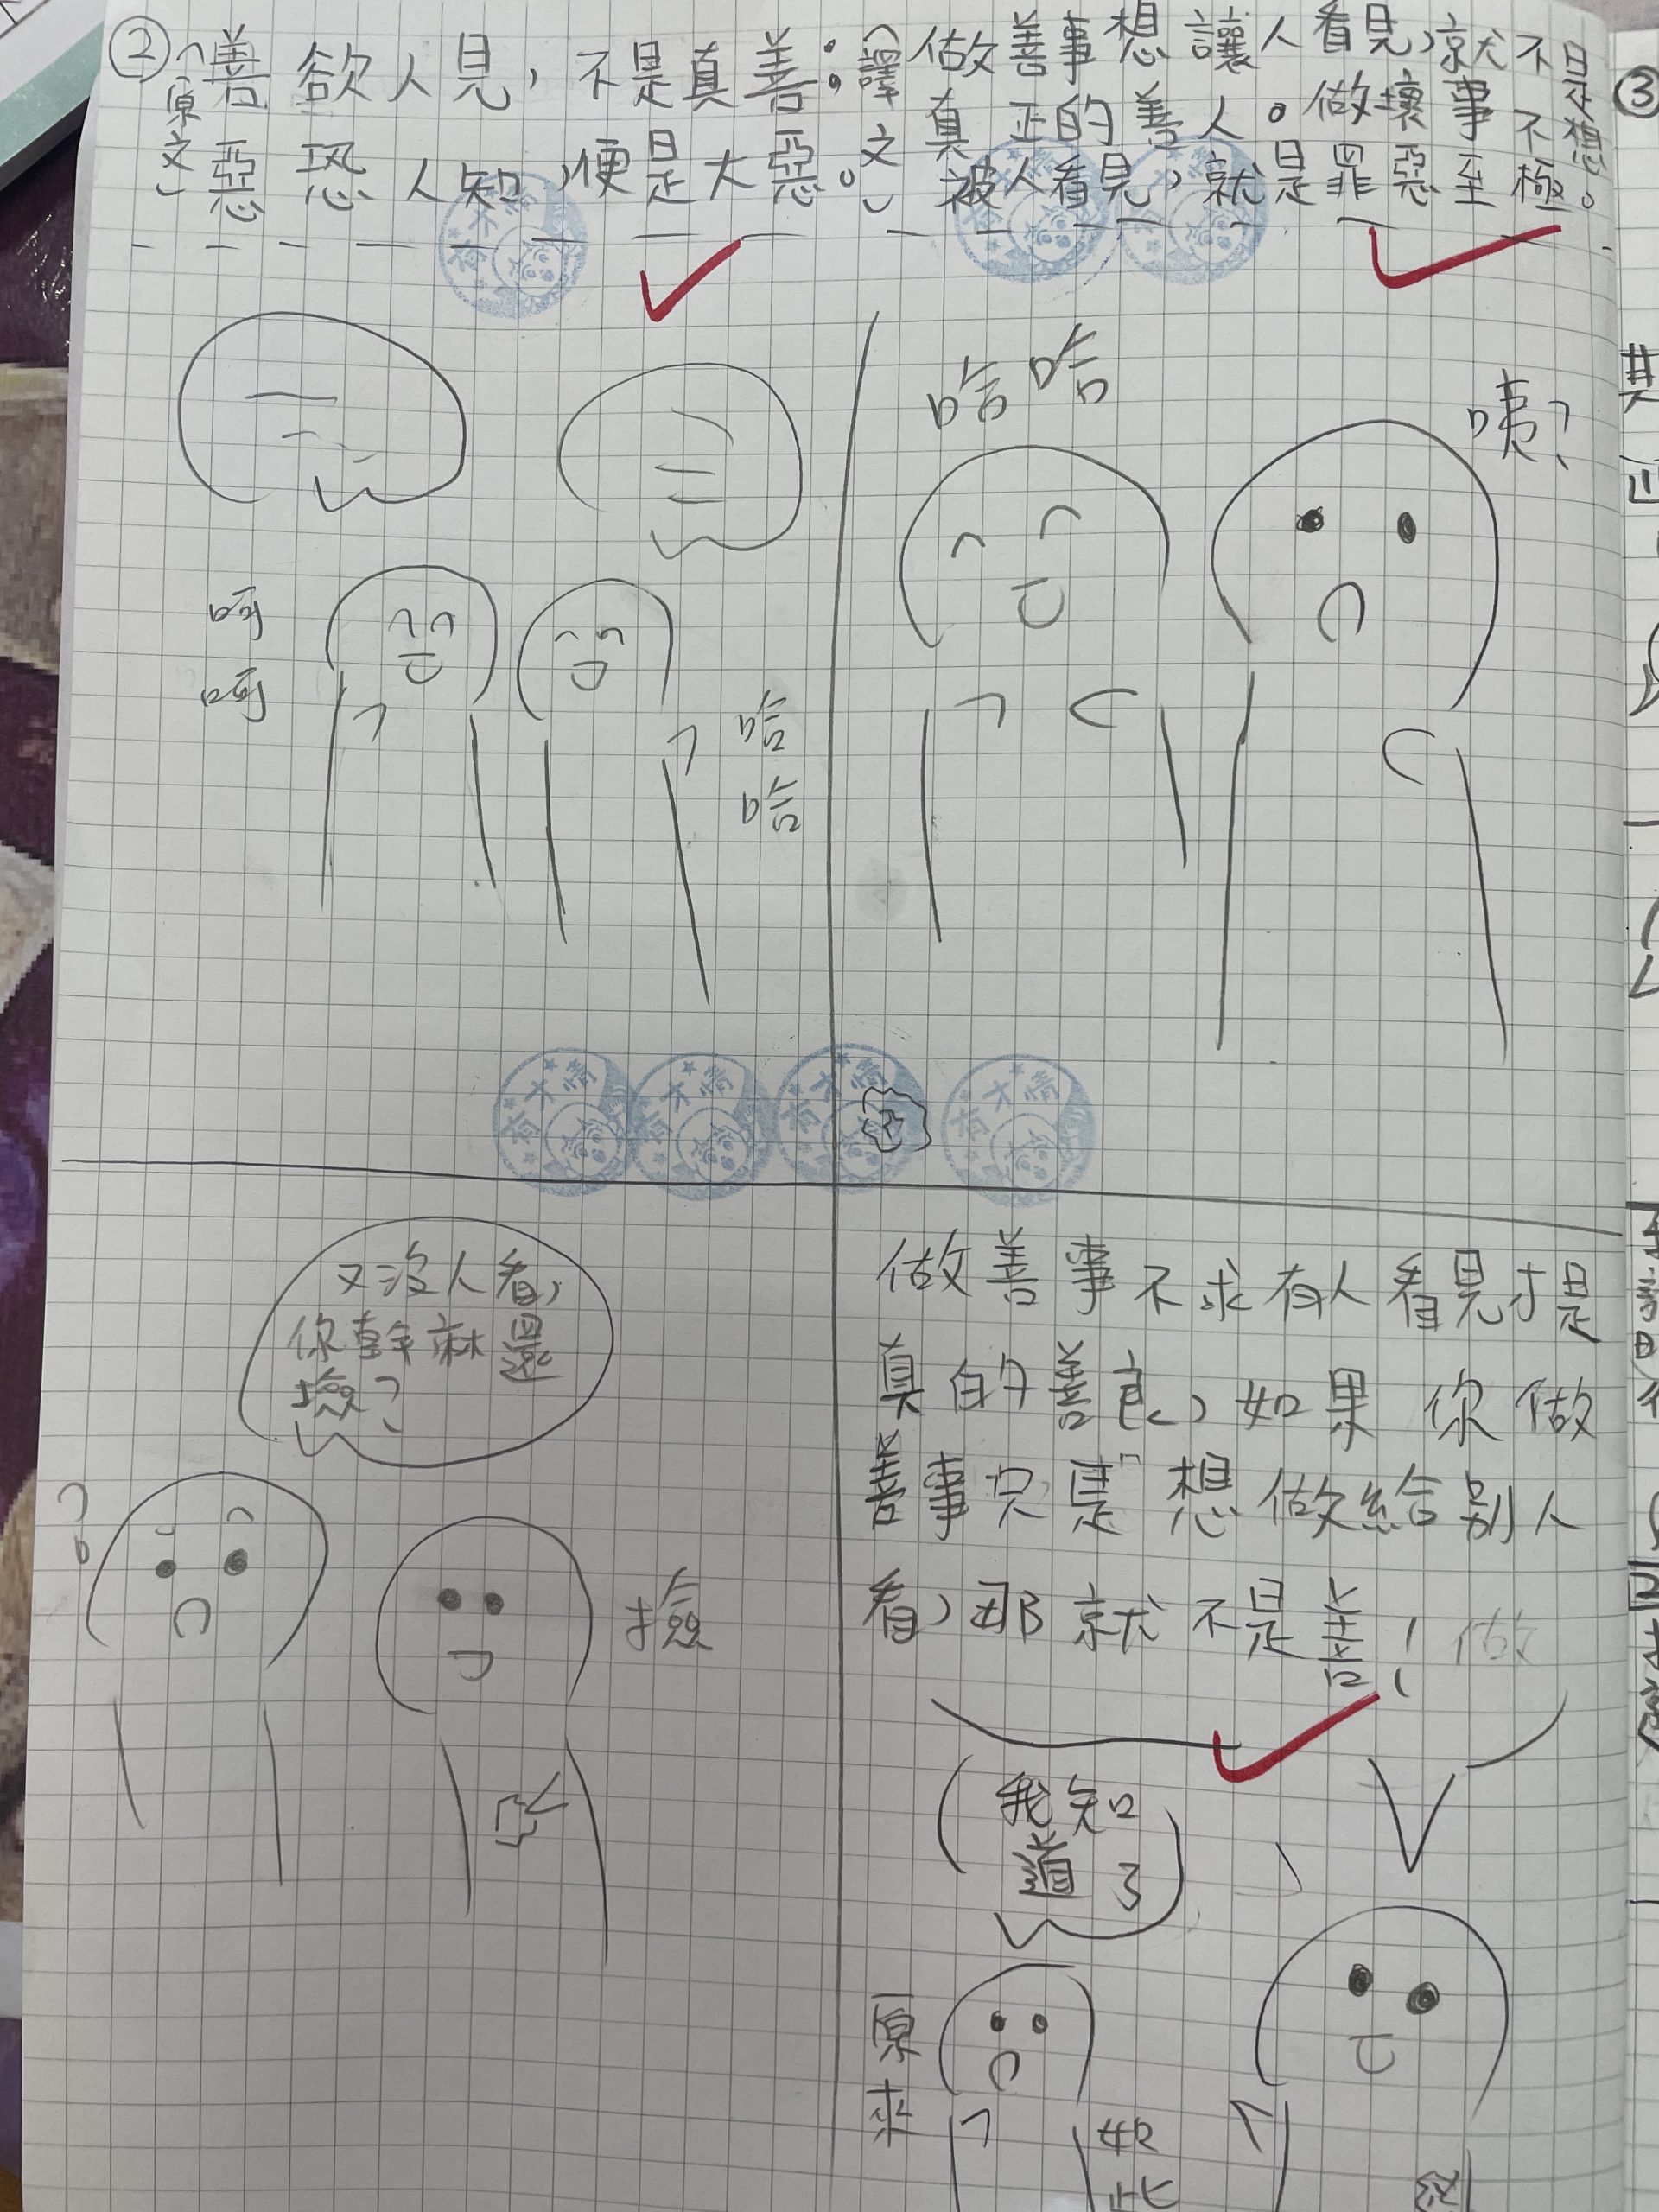 ②
（原文）
善欲人見，不是真善；
惡恐人知，便是大惡。
（譯文）
做善事想讓人看見，就不是
真正的善人。做壞事不想
被人看見，就是罪惡至極。
③
呵
呵
哈
哈
哈哈
咦？
有才情
有才情
有才情
有才情
有才情
有才情
有才情
又沒人看，
你幹麻還
撿？
撿
做善事不求有人看見才是
真的善良，如果你做
善事只是想做給別人
看，那就不是善！做
我知
道了
原
來
如
此